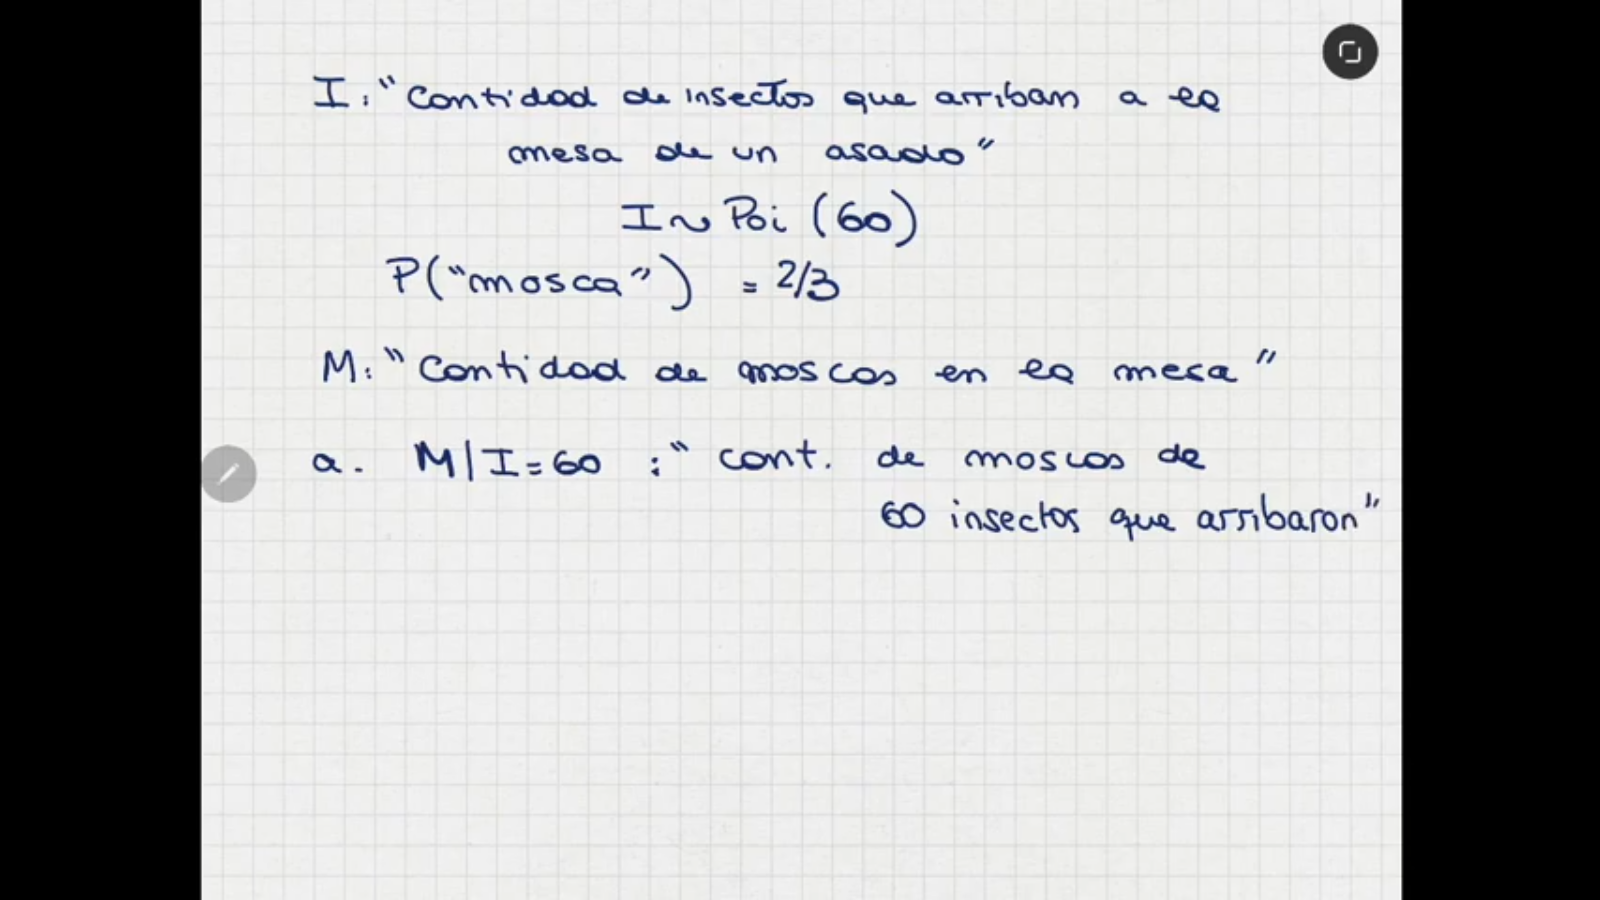 I: "Cantidad de insectos que arriban a la
mesa de un asado"
I ~ Poi (60)
P("mosca") = 2/3
M: "Cantidad de moscas en la mesa"
a. M | I = 60 : "cant. de moscas de
60 insectos que arribaron"